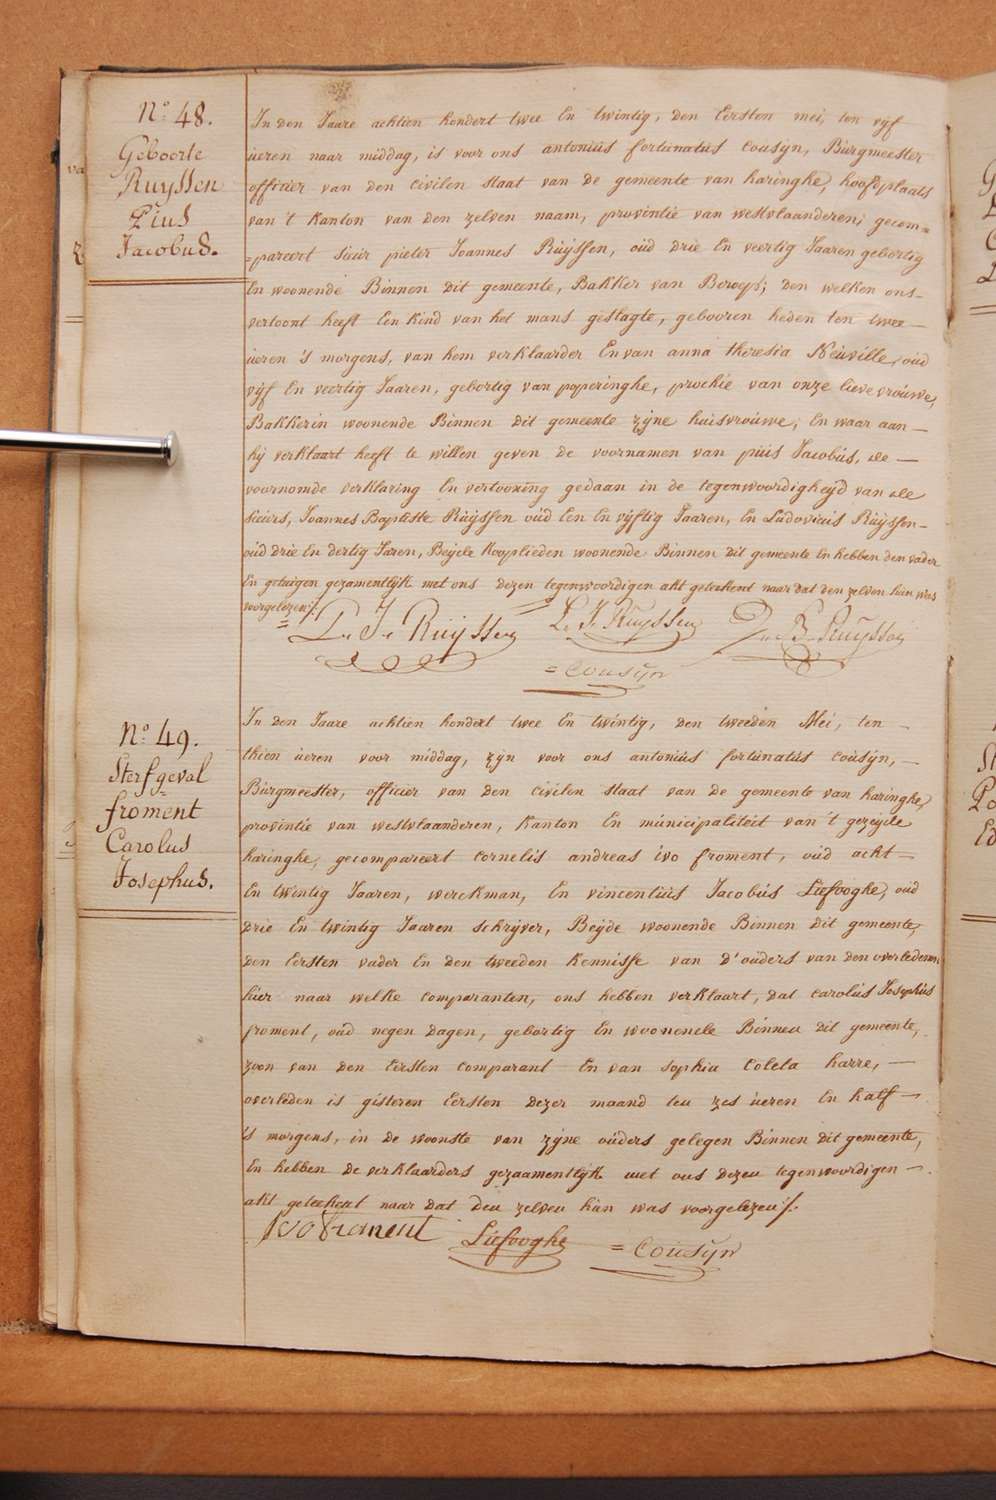 N.º 48.
Geboorte
Ruyssen
Pius
Jacobus.
In den Jaare achtien hondert twee En twintig, den Eersten mei, ten vyf
ueren naar middag, is voor ons antonius fortunatus cousyn, Burgmeester
officier van den civilen staat van de gemeente van haringhe, hoofdplaats
van 't kanton van den zelven naam, provintie van westvlaanderen; gecom=
=pareert sieur pieter Joannes Ruyssen, oud drie En veertig Jaaren gebortig
En woonende Binnen dit gemeente, Bakker van Beroep; den welken ons-
vertoont heeft Een kind van het mans geslagte, gebooren heden ten twee —
ueren 's morgens, van hem verklaarder En van anna theresia Neuville, oud
vyf En veertig Jaaren, gebortig van poperinghe, prochie van onze lieve vrouwe,
Bakkerin woonende Binnen dit gemeente zyne huisvrouwe; En waar aan —
hy verklaart heeft te willen geven de voornamen van pius Jacobus, de —
voornomde verklaring En vertooning gedaan in de tegenwoordigheyd van de
sieurs, Joannes Baptiste Ruyssen oud Een En vyftig Jaaren, En Ludovicus Ruyssen-
oud drie En dertig Jaren, Beyde kooplieden woonende Binnen dit gemeente En hebben den vader
En getuigen gezamentlyk met ons dezen tegenwoordigen akt geteekent naar dat den zelven hun was
voorgelezen
P. J. Ruyssen L. J. Ruyssen J. B. Ruyssen
= Cousyn
N.º 49.
Sterfgeval
froment
Carolus
Josephus.
In den Jaare achtien hondert twee En twintig, den tweeden Mei, ten —
thien ueren voor middag, zyn voor ons antonius fortunatus cousyn, —
Burgmeester, officier van den civilen staat van de gemeente van haringhe,
provintie van westvlaanderen, kanton En municipaliteit van 't gezeyde
haringhe, gecompareert cornelis andreas ivo froment, oud acht —
En twintig Jaaren, werckman, En vincentius Jacobus Liefooghe, oud
drie En twintig Jaaren schryver, Beyde woonende Binnen dit gemeente,
den Eersten vader En den tweeden kennisse van d'ouders van den overledenen
hier naar welke comparanten, ons hebben verklaart, dat carolus Josephus
froment, oud negen dagen, gebortig En woonende Binnen dit gemeente,
zoon van den Eersten comparant En van sophia coleta harre, —
overleden is gisteren Eersten dezer maand ten zes ueren En half —
's morgens, in de woonste van zyne ouders gelegen Binnen dit gemeente,
En hebben de verklaarders gezaamentlyk met ons dezen tegenwoordigen —
akt geteekent naar dat den zelven hun was voorgelezen ./.
ivo froment Liefooghe = Cousyn